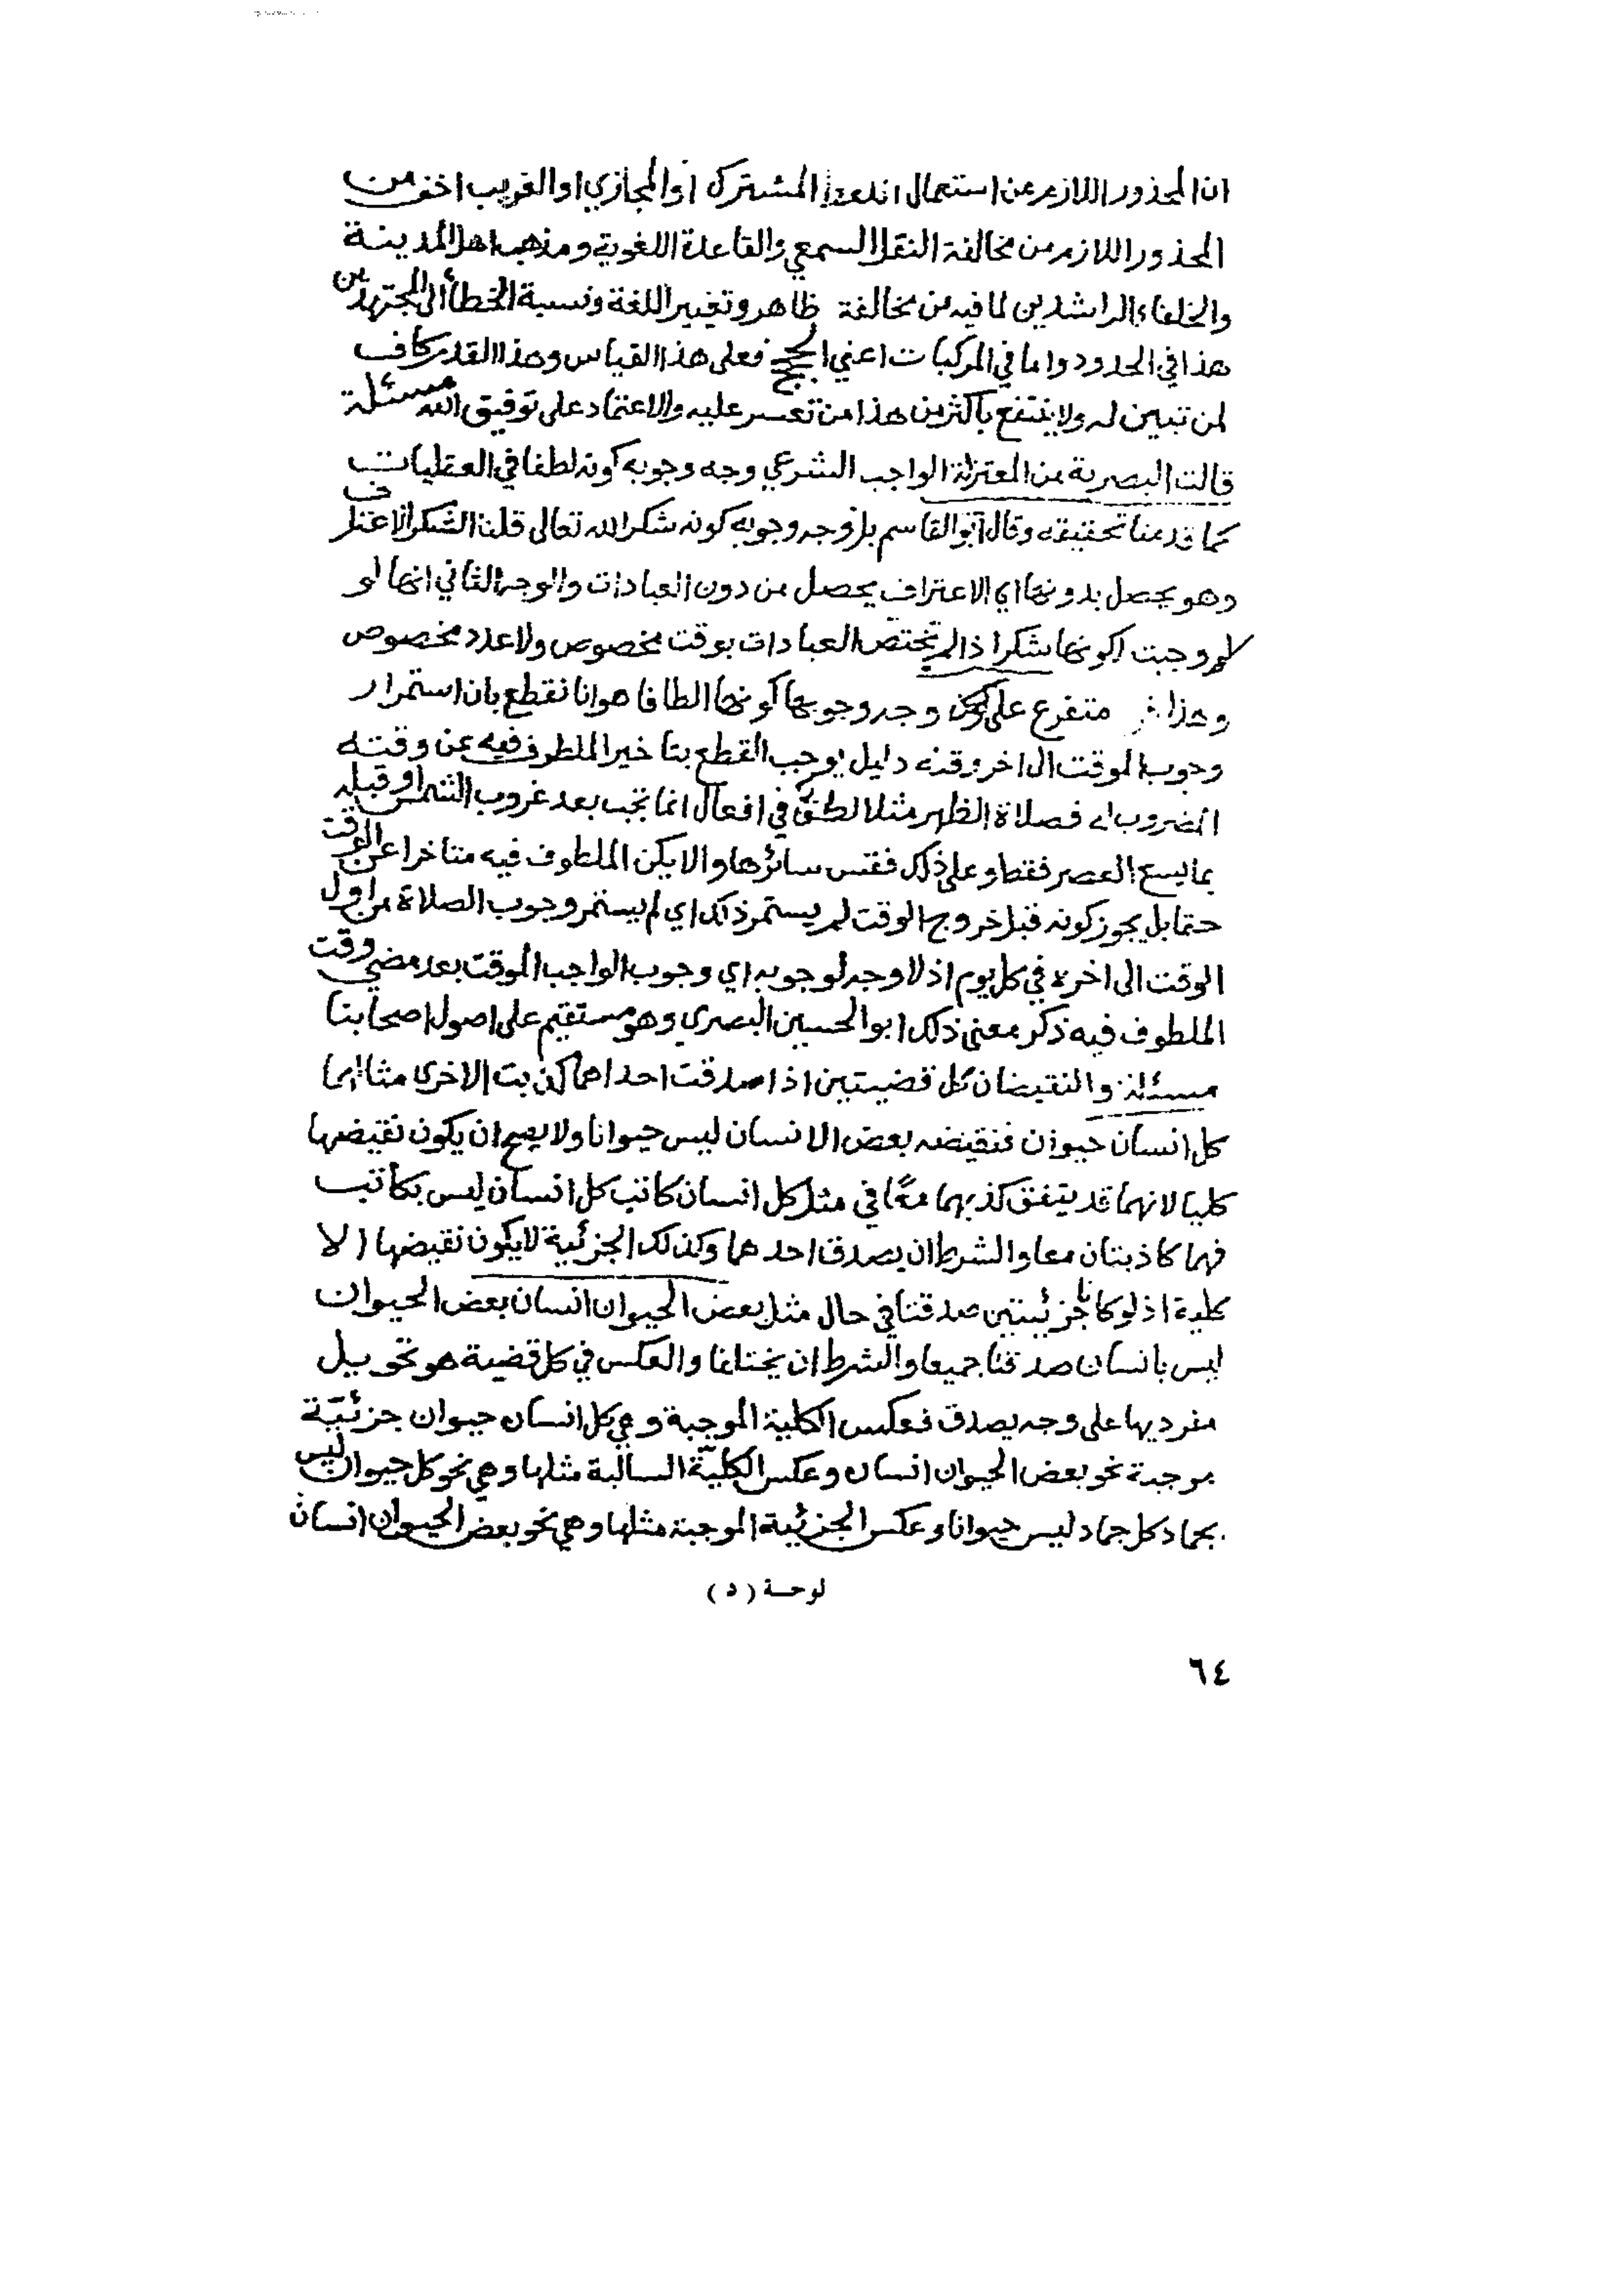 ان المحذور اللازم عن استعمال اللفظ المشترك او المجازي او الغريب اخف من
المحذور اللازم من مخالفة النقل السمعي والقاعدة اللغوية ومذهب اهل المدينة
والخلفاء الراشدين لما فيه من مخالفة ظاهر وتغيير اللغة ونسبة الخطأ الى المجتهدين
هذا في الحدود واما في المركبات اعني الحجج فعلى هذا القياس وهذا القدر كاف
لمن تبين له ولا ينتفع بأكثر من هذا من تعسر عليه والاعتماد على توفيق الله مسئلة
قالت البصرية من المعتزلة الواجب الشرعي وجه وجوبه كونه لطفا في العقليات
كما قدمنا تحقيقه وقال ابو القاسم بل وجه وجوبه كونه شكرا لله تعالى قلنا الشكر الاعتراف
وهو يحصل بدونها اي الاعتراف يحصل من دون العبادات والوجه الثاني انها لو
وجبت لكونها شكرا اذا لم تختص العبادات بوقت مخصوص ولا عدد مخصوص
وهذا متفرع على كون وجه وجوبها كونها الطافا هو انا نقطع بان استمرار
وجوب الموقت الى اخر وقته دليل يوجب القطع بتأخير الملطوف فيه عن وقته
المضروب له فصلاة الظهر مثلا لطف في افعال انما تجب بعد غروب الشمس او قبله
بما يسع العصر فقط وعلى ذلك فقس سائرها والا يكن الملطوف فيه متاخرا عن الوقت
حتما بل يجوز كونه قبل خروج الوقت لم يستمر ذلك اي لم يستمر وجوب الصلاة من اول
الوقت الى اخره في كل يوم اذ لا وجه لوجوبه اي وجوب الواجب الموقت بعد مضي وقت
الملطوف فيه ذكر معنى ذلك ابو الحسين البصري وهو مستقيم على اصول اصحابنا
مسئلة والنقيضان كل قضيتين اذا صدقت احداهما كذبت الاخرى مثالهما
كل انسان حيوان فنقيضه بعض الانسان ليس حيوانا ولا يصح ان يكون نقيضها
كليا لانهما قد يتفق كذبهما معًا في مثل كل انسان كاتب كل انسان ليس بكاتب
فهما كاذبتان معا والشرط ان يصدق احدهما وكذلك الجزئية لا يكون نقيضها الا
كلية اذ لو كانا جزئيتين صدقتا في حال مثل بعض الحيوان انسان بعض الحيوان
ليس بانسان صدقتا جميعا والشرط ان يختلفا والعكس في كل قضية هو تحويل
مفرديها على وجه يصدق فعكس الكلية الموجبة وهي كل انسان حيوان جزئيّة
موجبة نحو بعض الحيوان انسان وعكس الكليّة السالبة مثلها وهي نحو كل حيوان ليس
بجماد كل جماد ليس حيوانا وعكس الجزئية الموجبة مثلها وهي نحو بعض الحيوان انسان
لوحة (د)
٦٤